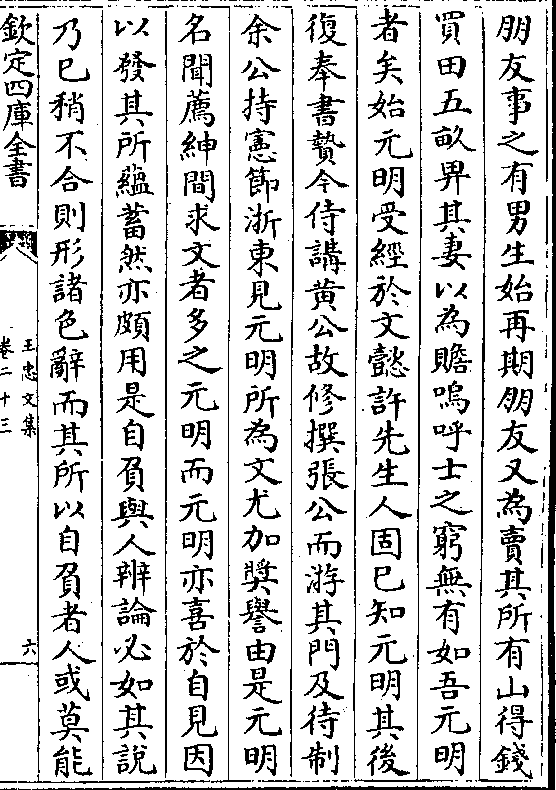 朋友事之有男生始再期朋友又為賣其所有山得錢
買田五畝畀其妻以為贍嗚呼士之窮無有如吾元明
者矣始元明受經於文懿許先生人固已知元明其後
復奉書贄今侍講黄公故修撰張公而游其門及待制
余公持憲節浙東見元明所為文尤加奬譽由是元明
名聞薦紳間求文者多之元明而元明亦喜於自見因
以發其所蘊蓄然亦頗用是自負與人辨論必如其說
乃已稍不合則形諸色辭而其所以自負者人或莫能
欽定四庫全書
王忠文集
卷二十三
六